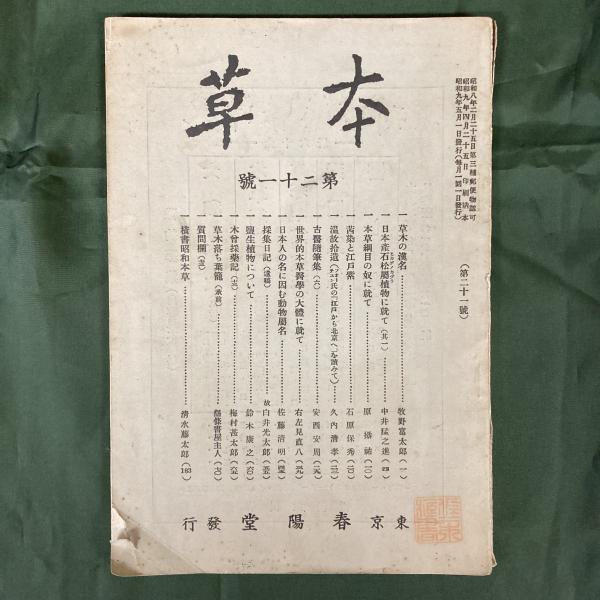 昭和八年二月二十五日第三種郵便物認可
昭和九年四月二十五日印刷納本
昭和九年五月一日發行(毎月一回一日發行)
(第二十一號)
本草
第二十一號
一 草木の漢名…牧野富太郎(一)
一 日本産石松屬植物に就て(其一)…中井猛之進
一 本草綱目の奴に就て…原
一 茜染と江戸紫…石原保秀
一 温故拾遺…久内清孝
一 古醫隨筆集(六)…安西安周
一 世界的本草醫學の大體に就て…右左見直八
一 日本人の名に因む動物屬名…佐藤清明
一 採集日記(遺稿)…故白井光太郎
一 鹽生植物について…鈴木康之
一 木曾採藥記…梅村甚太郎
一 草木落ち葉籠(承前)…書屋主人
一 質問欄
一 橫書昭和本草…清水藤太郎(163)
東京 春陽堂 發行